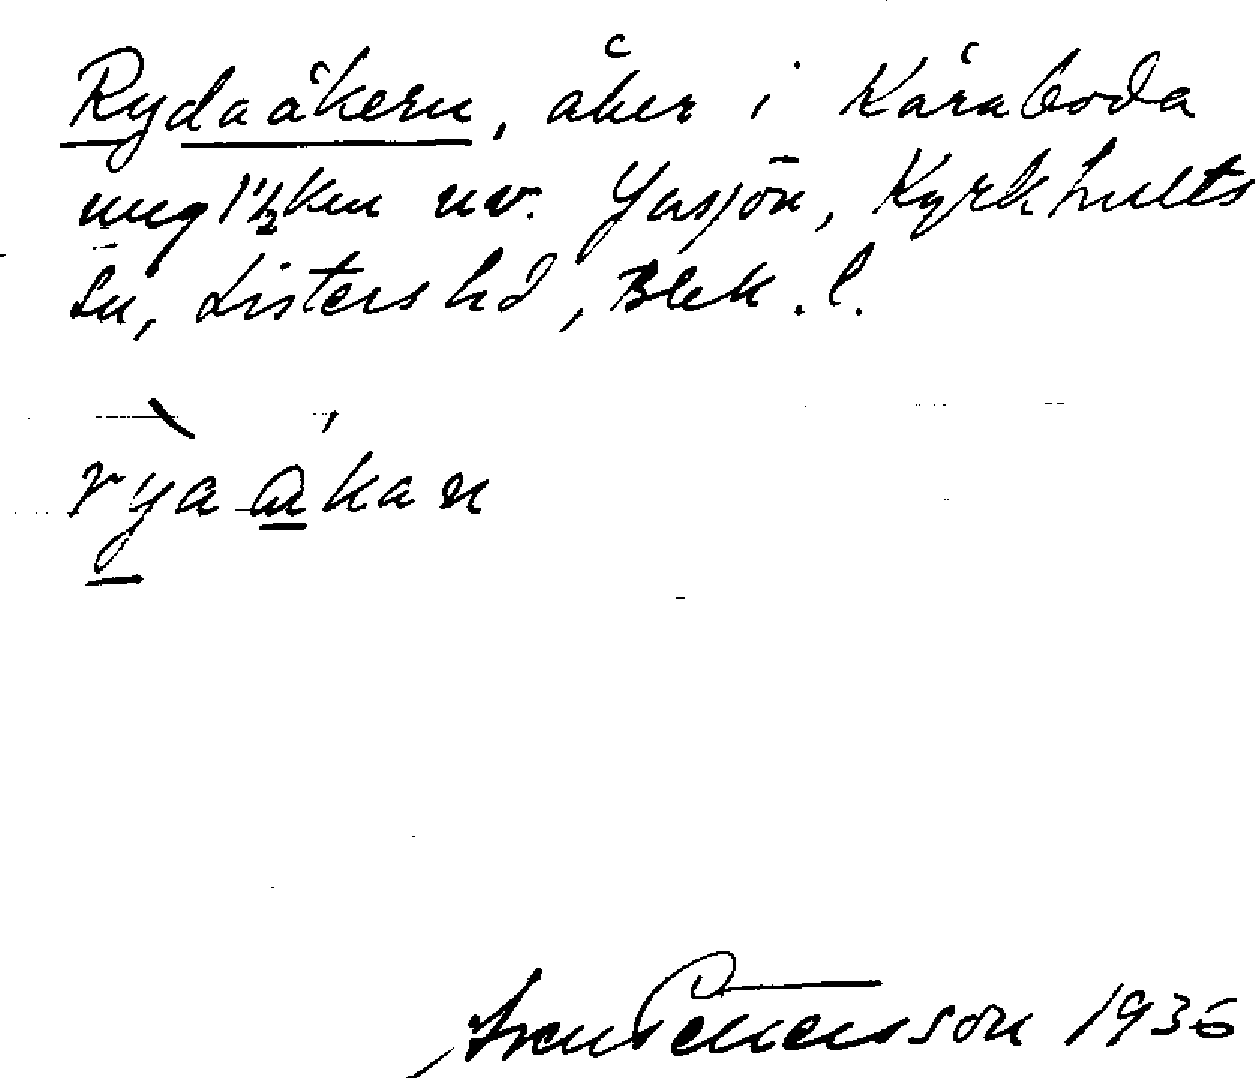 Rydaåkern, åker i Kåraboda
ung 1½ km nv. Yasjön, Kyrkhults
sn, Listers hd, Blek. l.
ryaåkan
Sven Pettersson 1936